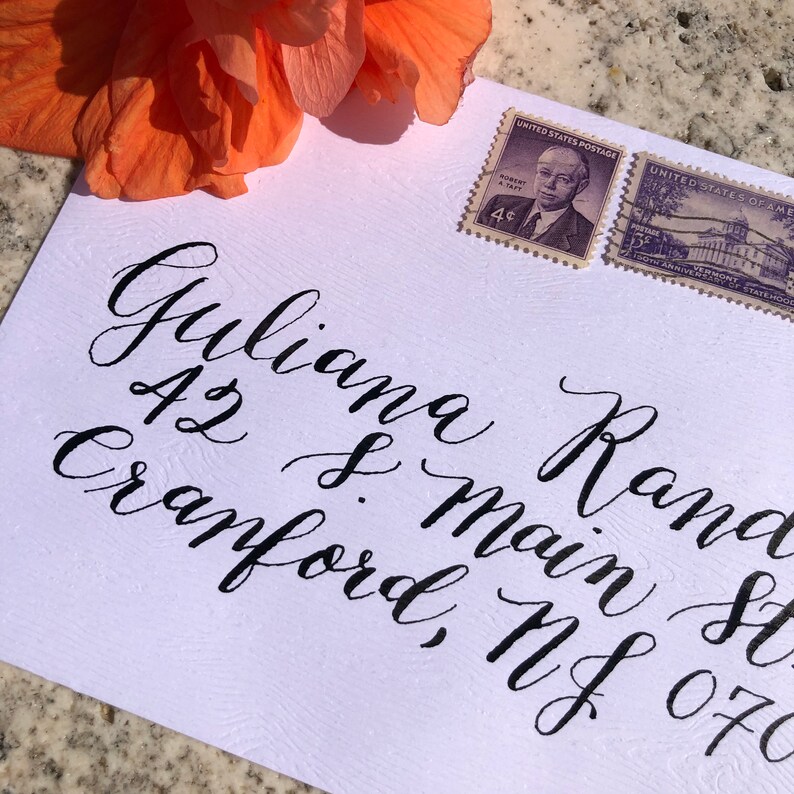 UNITED STATES POSTAGE
ROBERT
A. TAFT
4¢
UNITED STATES OF AM
POSTAGE
3¢
VERMONT
150TH ANNIVERSARY OF STATEHOOD
Guliana Rand
42 S. Main St
Cranford, NJ 070